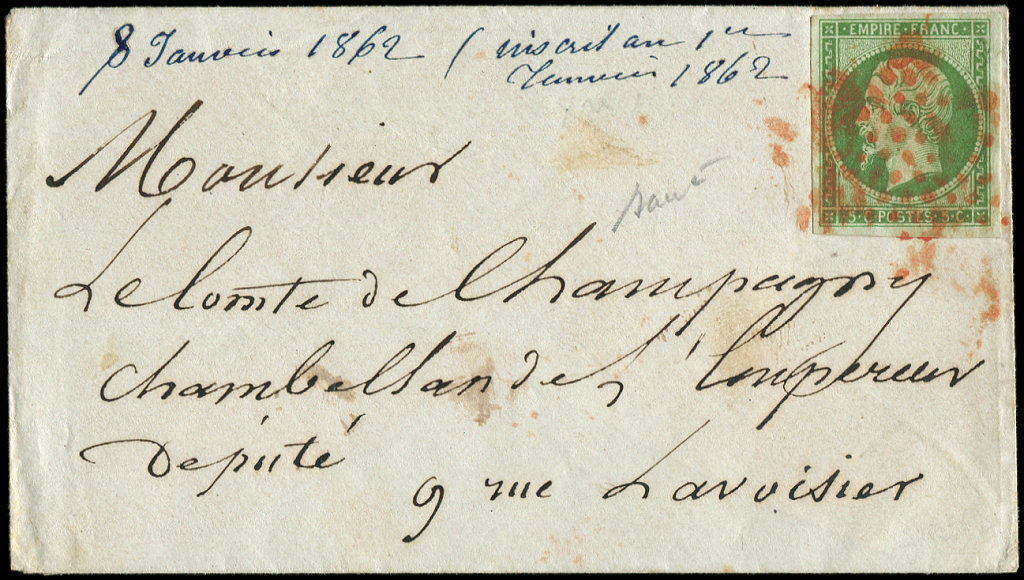 8 Janvier 1862 ( inscrit au 1er
Janvier 1862
EMPIRE FRANC
5·C·POSTES·5·C·
Monsieur
Le Comte de Champagny
Chambellan de l'Empereur
Député
9 rue Lavoisier